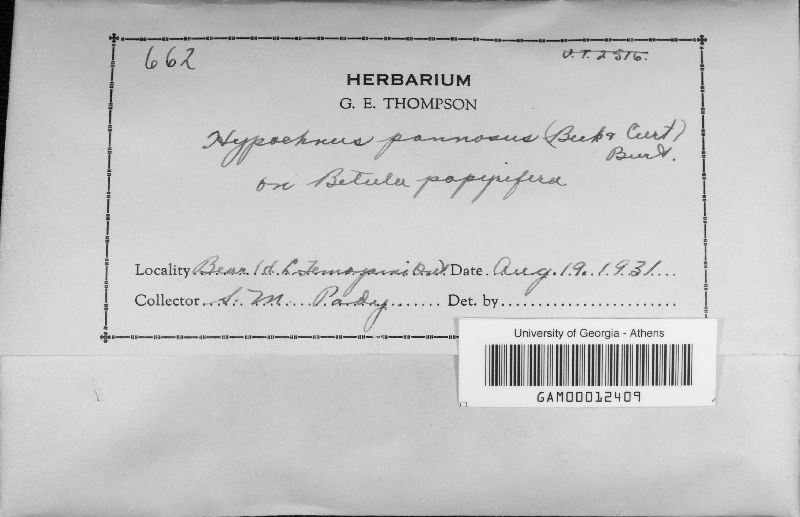 662
U.T. 2516.
HERBARIUM
G. E. THOMPSON
Hypochnus pannosus (Berk & Curt)
Burt.
on Betula papyrifera
Locality Bear Id. L. Temagami Ont Date Aug. 19. 1931
Collector S. M. Pady Det. by
University of Georgia - Athens
GAM00012409